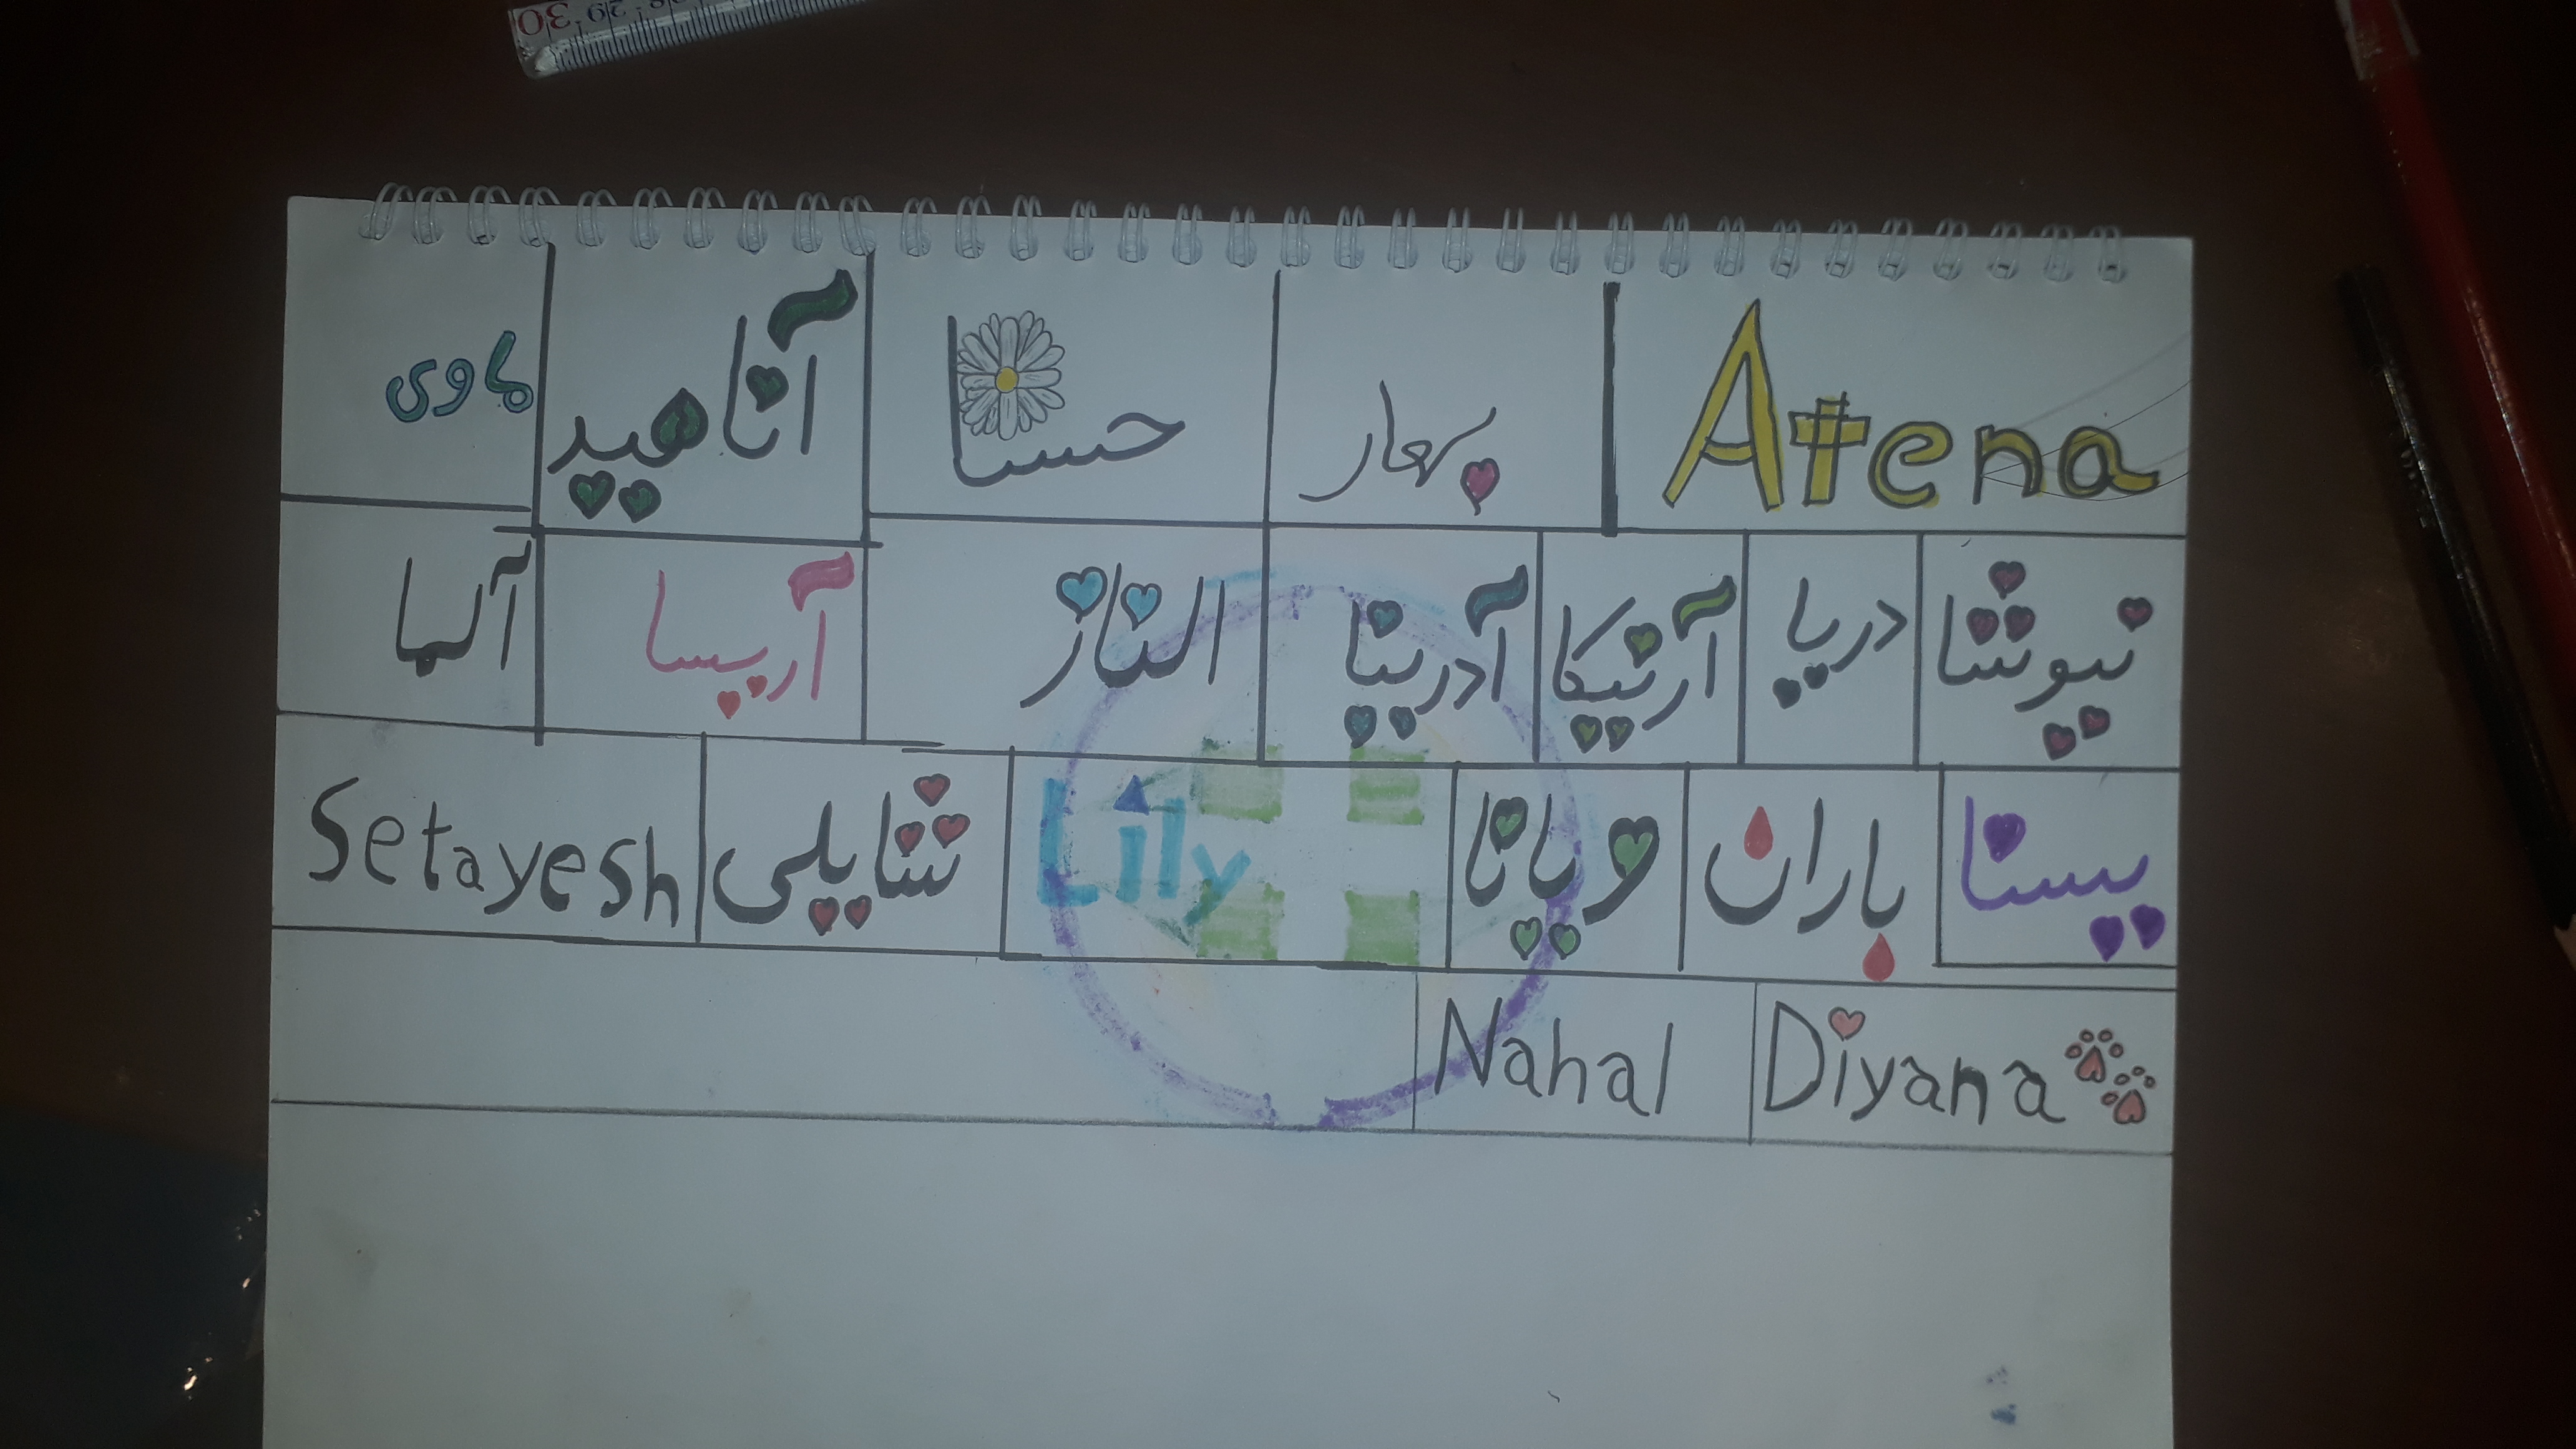 30 29 28
Atena بهار حسنا آناهید ماوی
نیوشا دریا آرنیکا آدرینا الناز آریسا آلما
یسنا باران ویانا Lily شایلی Setayesh
Diyana Nahal